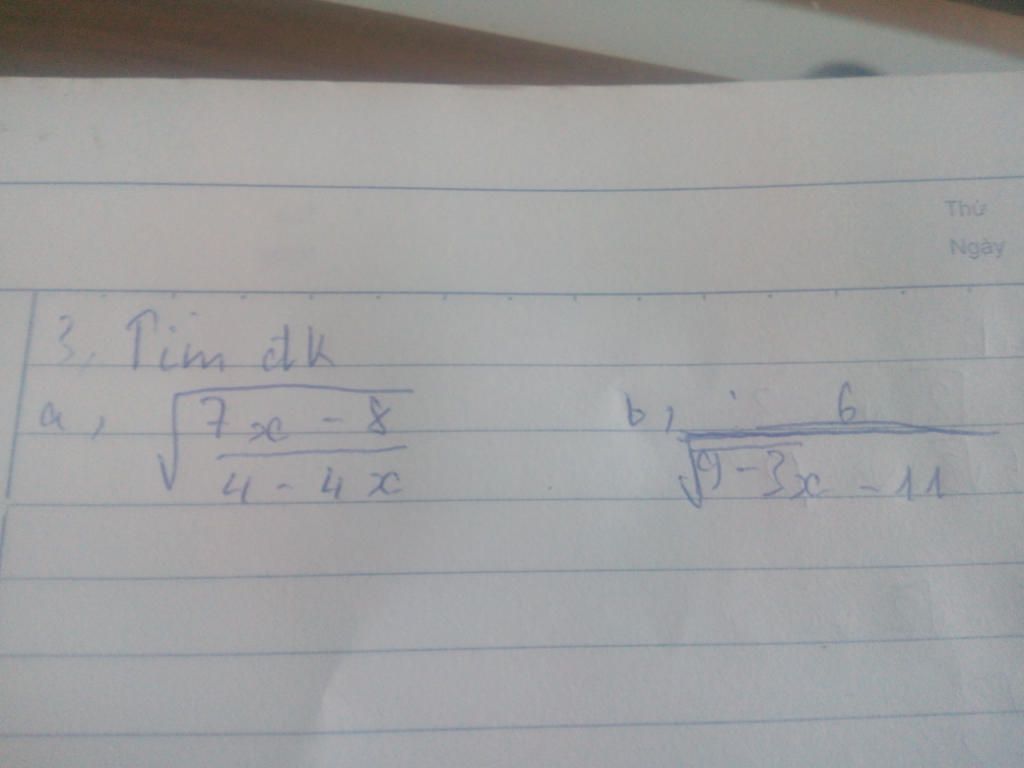 Thứ
Ngày
3, Tìm đk
a, √((7x - 8)/(4 - 4x))
b, 6/(√(9 - 3x) - 11)